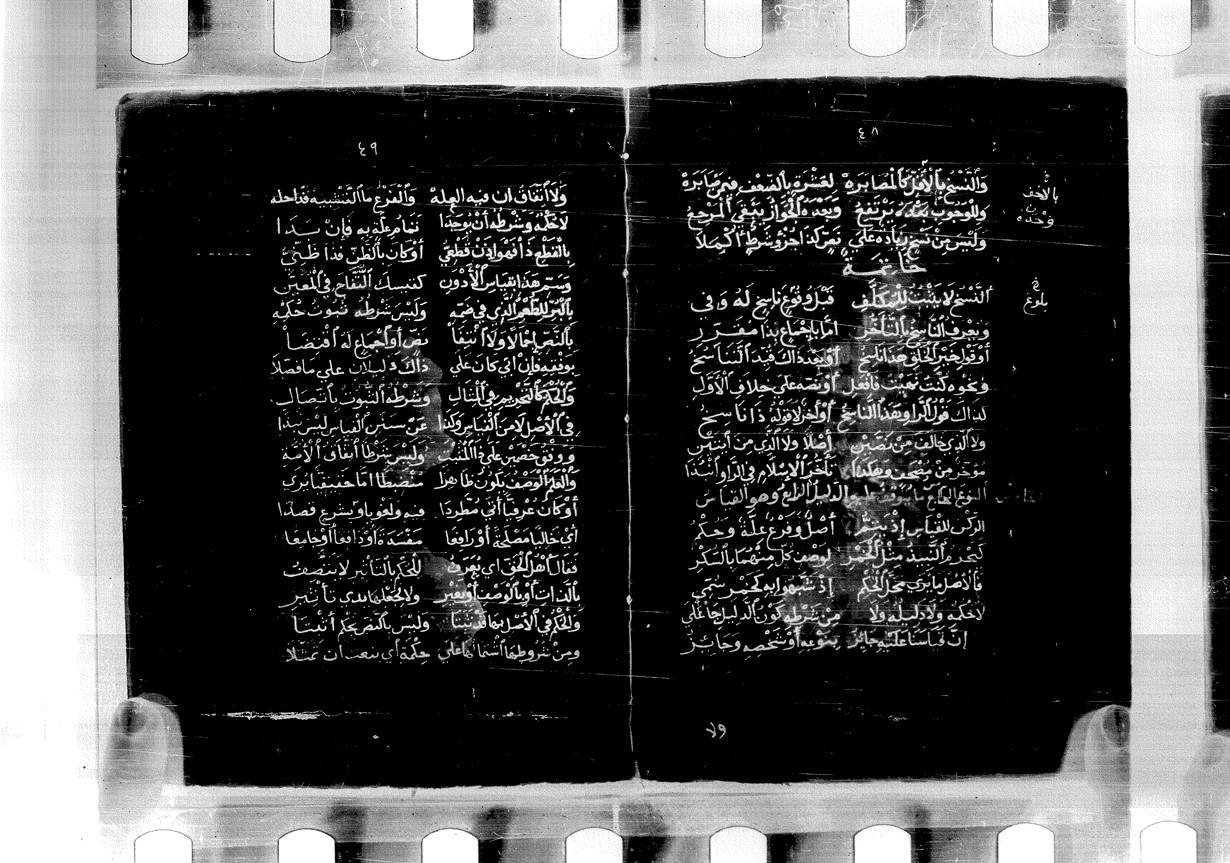 ٤٨
والنسخ بالأقل كالمصابرة لعشرة بالضعف فمن صابره
وللوجوب بعده يرتفع وبعده الجواز يبقى المرجع
وليس من نسخ زيادة على نص كذا جزؤ وشرط اكملا
خاتمة
النسخ لا يثبت للمكلف قبل وقوع ناسخ له وفي
ويعرف الناسخ بالتأخر اما باجماع بذا مقرر
أو قول خير الخلق هذا ناسخ أو بعد ذاك
ونحوه كنت نهيت فافعل أو نصه على خلاف الأول
كذاك قول الراو هذا الناسخ أو آخر لا قوله ذا ناسخ
ولا الذي خالف من نصين أصلا ولا الذي من
مؤخر من مصحف وهكذا تأخر الإسلام في الراو
النوع الدليل الرابع وهو القياس
الركن للقياس إذ يتم أصل وفرع علة وحكم
النبيذ مثل الخمر لوصف كل منهما بالسكر
فالأصل ما يرى محل الحكم إذ شبهوا به كخمر سمي
لا حكمه ولا دليله ولا من شرطه كون الدليل جا على
إن قياسنا عليه جايز بنوعه أو شخصه وجايز
بالأخف
بلوغ
ولا
٤٩
ولا اتفاق ان فيه العله والفرع ما التشبيه قد احله
لا حكمه وشرطه أن يوجدا تمام علة به فإن بدا
بالقطع ذا فهو اذن قطعي أو كان بالظن فذا ظني
وسم هذا بقياس الأدون كقيسك التفاح في المعين
بالبر للطعم الذي في ضمنه وليس شرطه ثبوت حكمه
بالنص اجمالا ولا انتفا نص أو اجماع له اقتضا
يوفقه فإن أتى كان على ذاك دليلان على ما فصلا
والحكم كالتحريم في المثال وشرطه الثبوت باتصال
في الأصل لا من القياس وكذا عن سنن القياس ليس بذا
ووفق خصمين على ذا المثبت وليس شرطا اتفاق الأمة
والعلم الوصف يكون ظاهرا منضبطا اما حقيقيا يرى
أو كان عرفيا أتى مطردا فيه ولغويا وشرع قصدا
أي جالبا مصلحة أو رافعا مفسدة أو دافعا أو جامعا
فقال أهل الحق أي يعرف للحكم بالتأثير لا يتصف
بالذات أو بالوصف أو بغير ولا لجعلها بذي تأثير
والحكم في الأصل بها قد ثبتا وليس بالنص بحكم أثبتا
ومن شروطها اشتمالها على حكمة أي تبعث ان تمتثلا